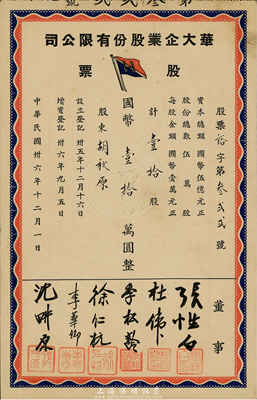 華大企業股份有限公司
股票
股票裕字第叁貳貳號
資本總額 國幣伍億元正
股份總數 伍萬股
每股金額 國幣壹萬元正
計壹拾股
國幣壹拾萬圓整
股東胡秋原
設立登記 卅五年十二月十六
增資登記 卅六年九月五日
中華民國卅六年十二月一日
董事
杜偉
徐仁杭
李華卿
沈畔原